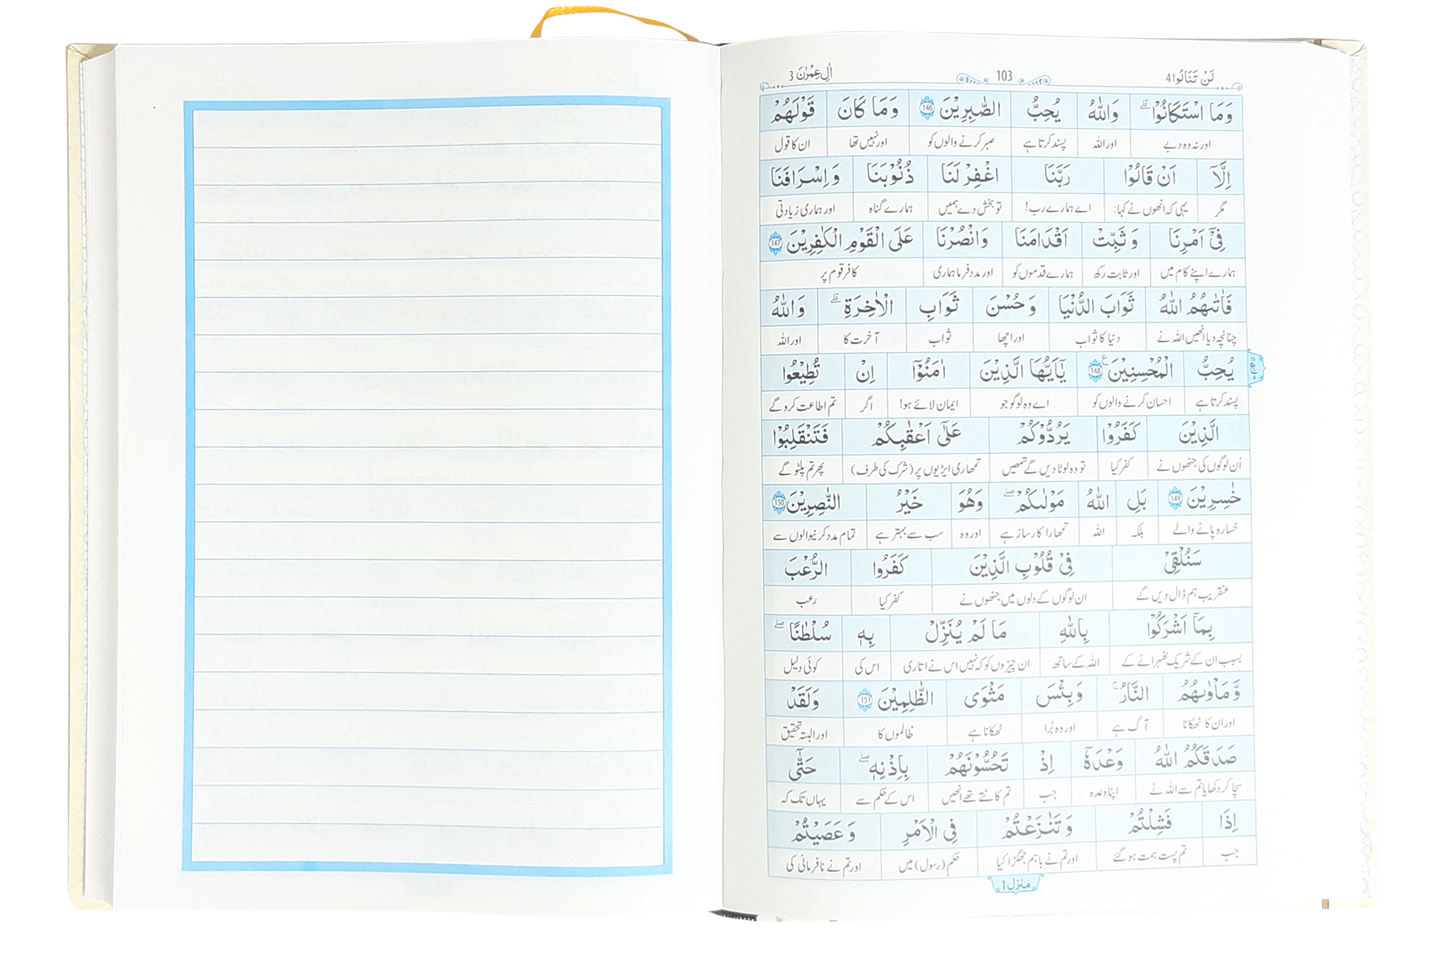 لَنْ تَنَالُوا 4 103 اٰلِ عِمْرٰنَ 3
وَمَا اسْتَكَانُوْا ۗ وَاللّٰهُ يُحِبُّ الصّٰبِرِيْنَ 146 وَمَا كَانَ قَوْلَهُمْ
اور نہ وہ دبے اور اللہ پسند کرتا ہے صبر کرنے والوں کو اور نہیں تھا ان کا قول
اِلَّآ اَنْ قَالُوْا رَبَّنَا اغْفِرْ لَنَا ذُنُوْبَنَا وَاِسْرَافَنَا
مگر یہی کہ انھوں نے کہا: اے ہمارے رب! تو بخش دے ہمیں ہمارے گناہ اور ہماری زیادتی
فِيْٓ اَمْرِنَا وَثَبِّتْ اَقْدَامَنَا وَانْصُرْنَا عَلَى الْقَوْمِ الْكٰفِرِيْنَ 147
ہمارے اپنے کام میں اور ثابت رکھ ہمارے قدموں کو اور مدد فرما ہماری کافر قوم پر
فَاٰتٰىهُمُ اللّٰهُ ثَوَابَ الدُّنْيَا وَحُسْنَ ثَوَابِ الْاٰخِرَةِ ۗ وَاللّٰهُ
چنانچہ دیا انھیں اللہ نے دنیا کا ثواب اور اچھا ثواب آخرت کا اور اللہ
يُحِبُّ الْمُحْسِنِيْنَ ع 148 يٰٓاَيُّهَا الَّذِيْنَ اٰمَنُوْٓا اِنْ تُطِيْعُوا
پسند کرتا ہے احسان کرنے والوں کو اے وہ لوگو جو ایمان لائے ہو! اگر تم اطاعت کرو گے
الَّذِيْنَ كَفَرُوْا يَرُدُّوْكُمْ عَلٰٓى اَعْقٰبِكُمْ فَتَنْقَلِبُوْا
اُن لوگوں کی جنھوں نے کفر کیا تو وہ لوٹا دیں گے تمھیں تمھاری ایڑیوں پر (شرک کی طرف) پھر تم پلٹو گے
خٰسِرِيْنَ 149 بَلِ اللّٰهُ مَوْلٰىكُمْ ۖ وَهُوَ خَيْرُ النّٰصِرِيْنَ 150
خسارہ پانے والے بلکہ اللہ تمھارا کارساز ہے اور وہ سب سے بہتر ہے تمام مدد کرنیوالوں سے
سَنُلْقِيْ فِيْ قُلُوْبِ الَّذِيْنَ كَفَرُوا الرُّعْبَ
عنقریب ہم ڈال دیں گے ان لوگوں کے دلوں میں جنھوں نے کفر کیا رعب
بِمَآ اَشْرَكُوْا بِاللّٰهِ مَا لَمْ يُنَزِّلْ بِهٖ سُلْطٰنًا ۖ
بسبب ان کے شریک ٹھہرانے کے اللہ کے ساتھ ان چیزوں کو کہ نہیں اس نے اتاری اس کی کوئی دلیل
وَّمَاْوٰىهُمُ النَّارُ ۚ وَبِئْسَ مَثْوَى الظّٰلِمِيْنَ 151 وَلَقَدْ
اور ان کا ٹھکانا آگ ہے اور وہ بُرا ٹھکانا ہے ظالموں کا اور البتہ تحقیق
صَدَقَكُمُ اللّٰهُ وَعْدَهٗٓ اِذْ تَحُسُّوْنَهُمْ بِاِذْنِهٖ ۖ حَتّٰٓى
سچا کر دکھایا تم سے اللہ نے اپنا وعدہ جب تم کاٹتے تھے انھیں اس کے حکم سے یہاں تک کہ
اِذَا فَشِلْتُمْ وَتَنٰزَعْتُمْ فِي الْاَمْرِ وَعَصَيْتُمْ
جب تم پست ہمت ہو گئے اور تم نے باہم جھگڑا کیا حکم (رسول) میں اور تم نے نافرمانی کی
منزل 1